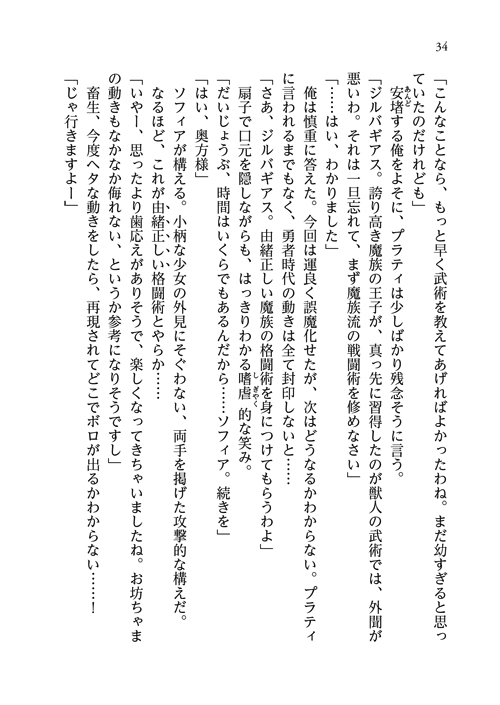 34
「こんなことなら、もっと早く武術を教えてあげればよかったわね。まだ幼すぎると思っ
ていたのだけれども」
安堵する俺をよそに、プラティは少しばかり残念そうに言う。
「ジルバギアス。誇り高き魔族の王子が、真っ先に習得したのが獣人の武術では、外聞が
悪いわ。それは一旦忘れて、まず魔族流の戦闘術を修めなさい」
「……はい、わかりました」
俺は慎重に答えた。今回は運良く誤魔化せたが、次はどうなるかわからない。プラティ
に言われるまでもなく、勇者時代の動きは全て封印しないと……
「さあ、ジルバギアス。由緒正しい魔族の格闘術を身につけてもらうわよ」
扇子で口元を隠しながらも、はっきりわかる嗜虐的な笑み。
「だいじょうぶ、時間はいくらでもあるんだから……ソフィア。続きを」
「はい、奥方様」
ソフィアが構える。小柄な少女の外見にそぐわない、両手を掲げた攻撃的な構えだ。
なるほど、これが由緒正しい格闘術とやらか……
「いやー、思ったより歯応えがありそうで、楽しくなってきちゃいましたね。お坊ちゃま
の動きもなかなか侮れない、というか参考になりそうですし」
畜生、今度ヘタな動きをしたら、再現されてどこでボロが出るかわからない……！
「じゃ行きますよー」